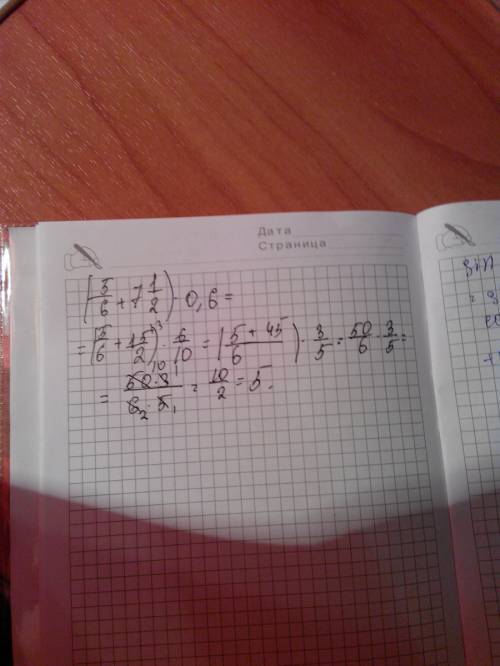 Дата
Страница
(5/6 + 7 1/2) · 0,6 =
= (5/6 + 15/2 ³) · 6/10 = (5 + 45 / 6) · 3/5 = 50/6 · 3/5 =
= 50 10 · 3 1 / 6 2 · 5 1 = 10/2 = 5.
sin